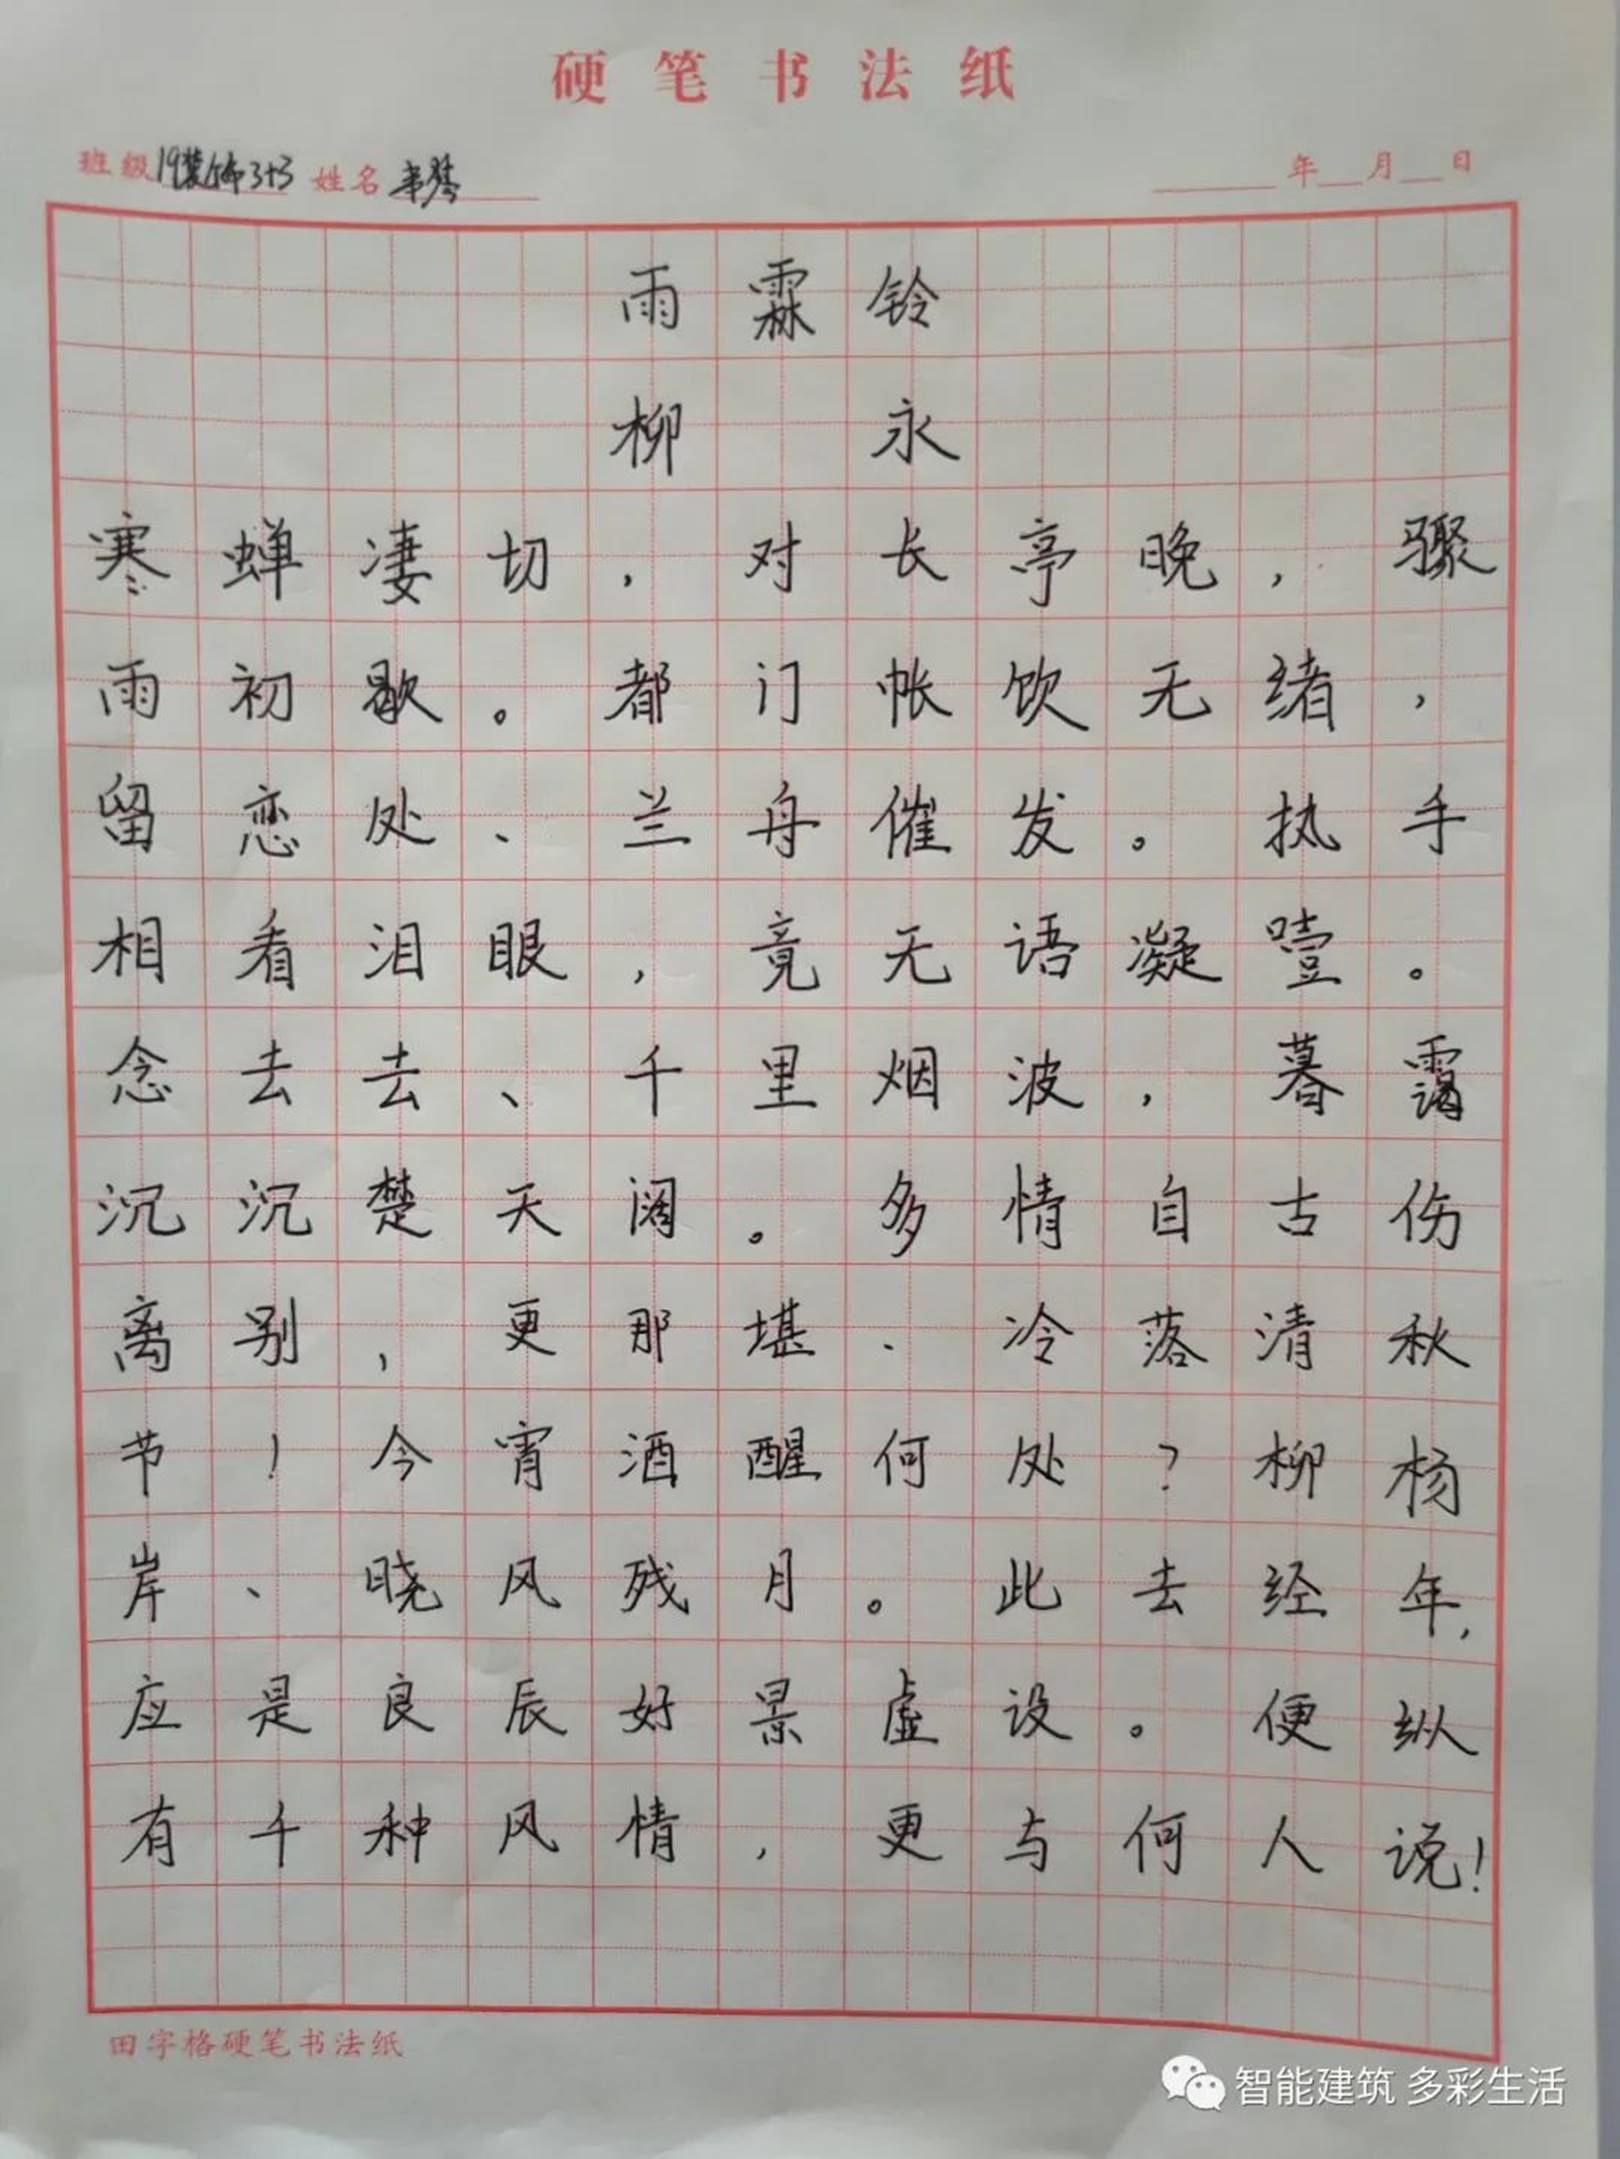 硬笔书法纸
班级19装饰3+3 姓名韦琴 年 月 日
雨霖铃
柳 永
寒蝉凄切，对长亭晚，骤
雨初歇。都门帐饮无绪，
留恋处、兰舟催发。执手
相看泪眼，竟无语凝噎。
念去去、千里烟波，暮霭
沉沉楚天阔。多情自古伤
离别，更那堪、冷落清秋
节！今宵酒醒何处？柳杨
岸、晓风残月。此去经年，
应是良辰好景虚设。便纵
有千种风情，更与何人说！
田字格硬笔书法纸
智能建筑 多彩生活